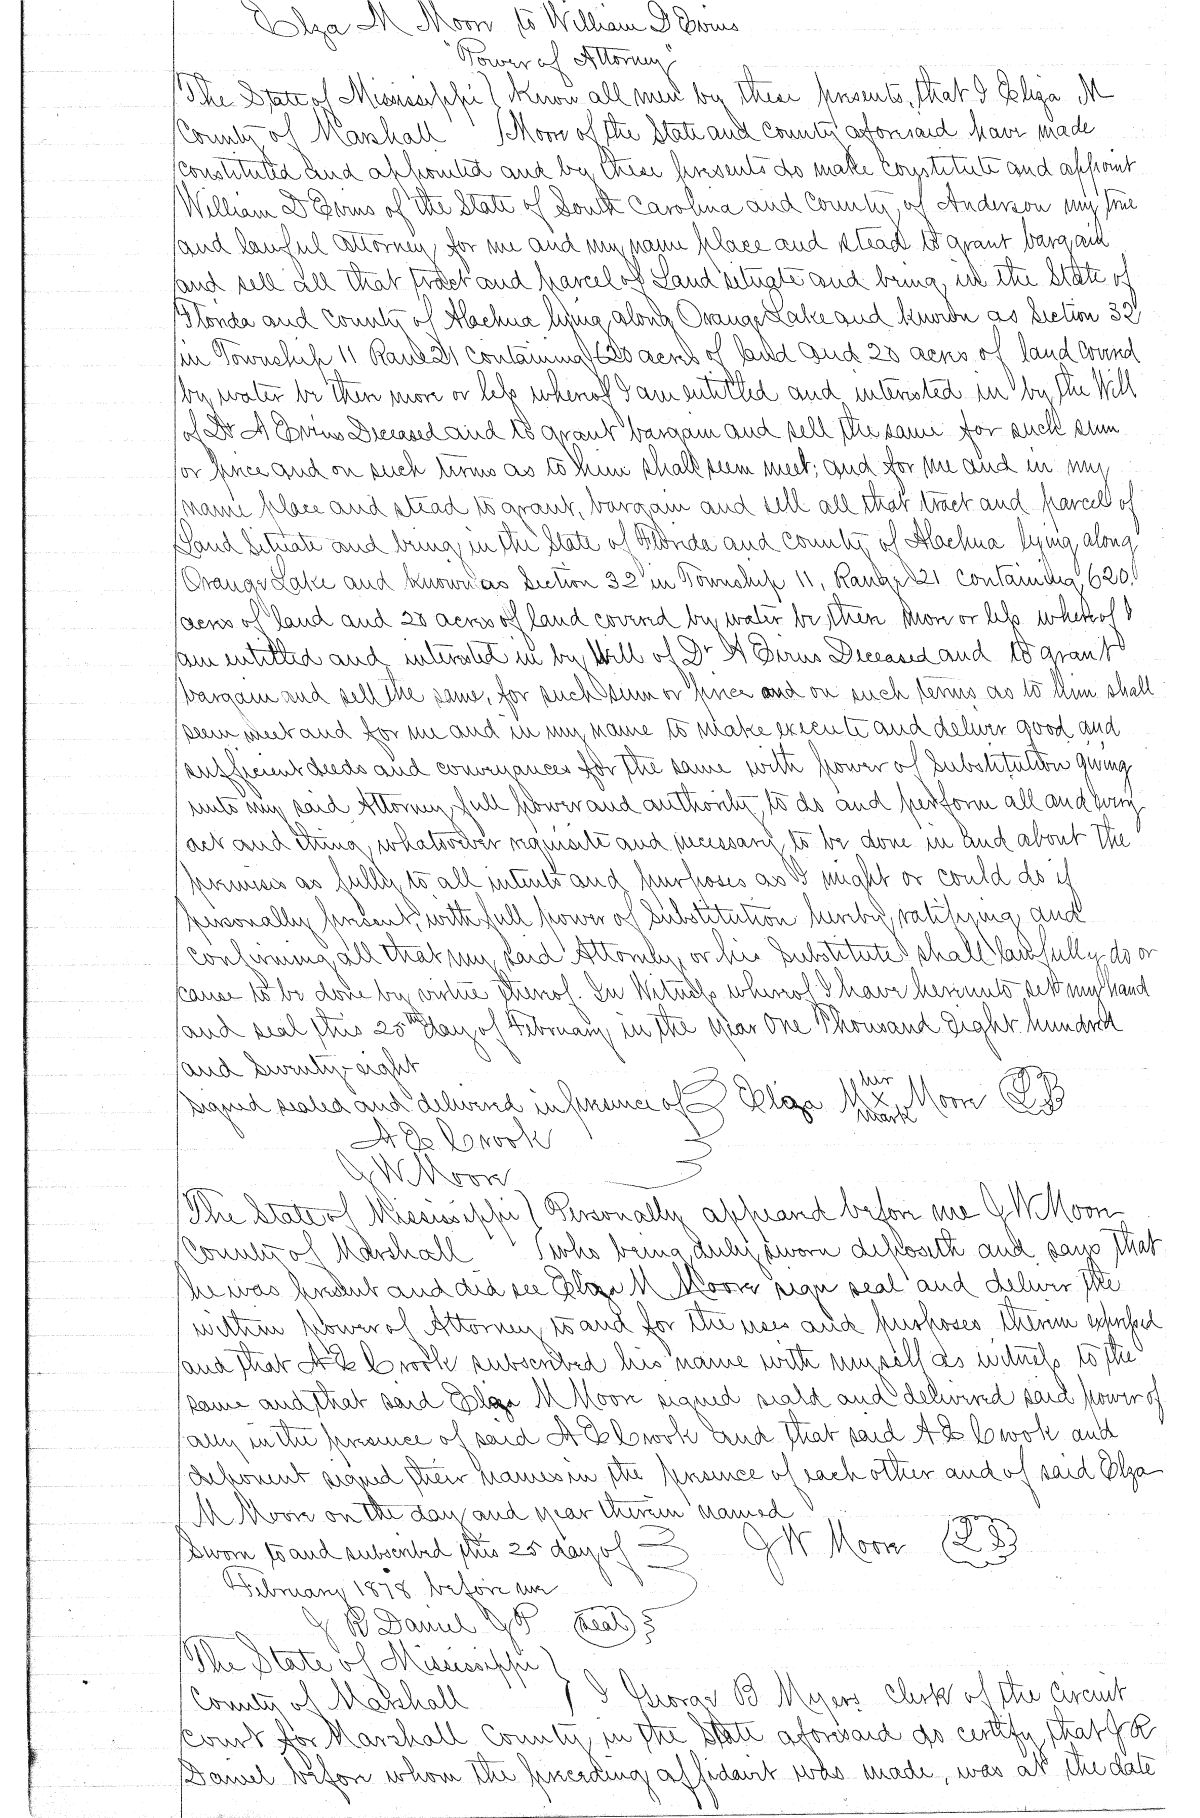 Elza M Moon to William D Evins
"Power of Attorney"
The State of Mississippi } Know all men by these presents, that I Eliza M
County of Marshall } Moon of the State and county aforesaid have made
constituted and appointed and by these presents do make constitute and appoint
William D Evins of the State of South Carolina and County of Anderson my true
and lawful attorney, for me and my name place and stead to grant bargain
and sell all that tract and parcel of Land situate and being in the State of
Florida and County of Alachua lying along Orange Lake and known as Section 32
in Township 11 Rane 21 containing 620 acres of land and 20 acres of land covered
by water be there more or less whereof I am entitled and interested in by the Will
of Dr A Evins Deceased and to grant bargain and sell the same for such sum
or price and on such terms as to him shall seem meet; and for me and in my
name place and stead to grant, bargain and sell all that tract and parcel of
Land Situate and being in the State of Florida and County of Alachua lying along
Orange Lake and known as Section 32 in Township 11, Range 21 containing 620
acres of land and 20 acres of land covered by water be there more or less whereof I
am entitled and interested in by Will of Dr A Evins Deceased and to grant
bargain and sell the same, for such sum or price and on such terms as to him shall
seem meet and for me and in my name to make execute and deliver good and
sufficient deeds and conveyances for the same with power of Substitution giving
unto my said Attorney full power and authority to do and perform all and every
act and thing whatsoever requisite and necessary to be done in and about the
premises as fully to all intents and purposes as I might or could do if
personally present, with full power of Substitution hereby ratifying and
confirming all that my said Attorney or his Substitute shall lawfully do or
cause to be done by virtue thereof. In Witness whereof I have hereunto set my hand
and seal this 25th day of February in the year One Thousand Eight hundred
and Seventy-eight
signed sealed and delivered in presence of } Elza M her X mark Moon LS
A E Crook
G W Moon
The State of Mississippi } Personally appeared before me G W Moon
County of Marshall } who being duly sworn deposeth and says that
he was present and did see Elza M Moon sign seal and deliver the
within power of Attorney to and for the uses and purposes therein expressed
and that A E Crook subscribed his name with myself as witness to the
same and that said Elza M Moon signed seald and delivered said power of
atty in the presence of said A E Crook and that said A E Crook and
deponent signed their names in the presence of each other and of said Elza
M Moon on the day and year therein named
Sworn to and subscribed this 25 day of } G W Moon LS
February 1878 before me
J R Daniel J P seal
The State of Mississippi }
County of Marshall } I George B Myers Clerk of the circuit
court for Marshall County in the State aforesaid do certify that J R
Daniel before whom the preceding affidavit was made, was at the date